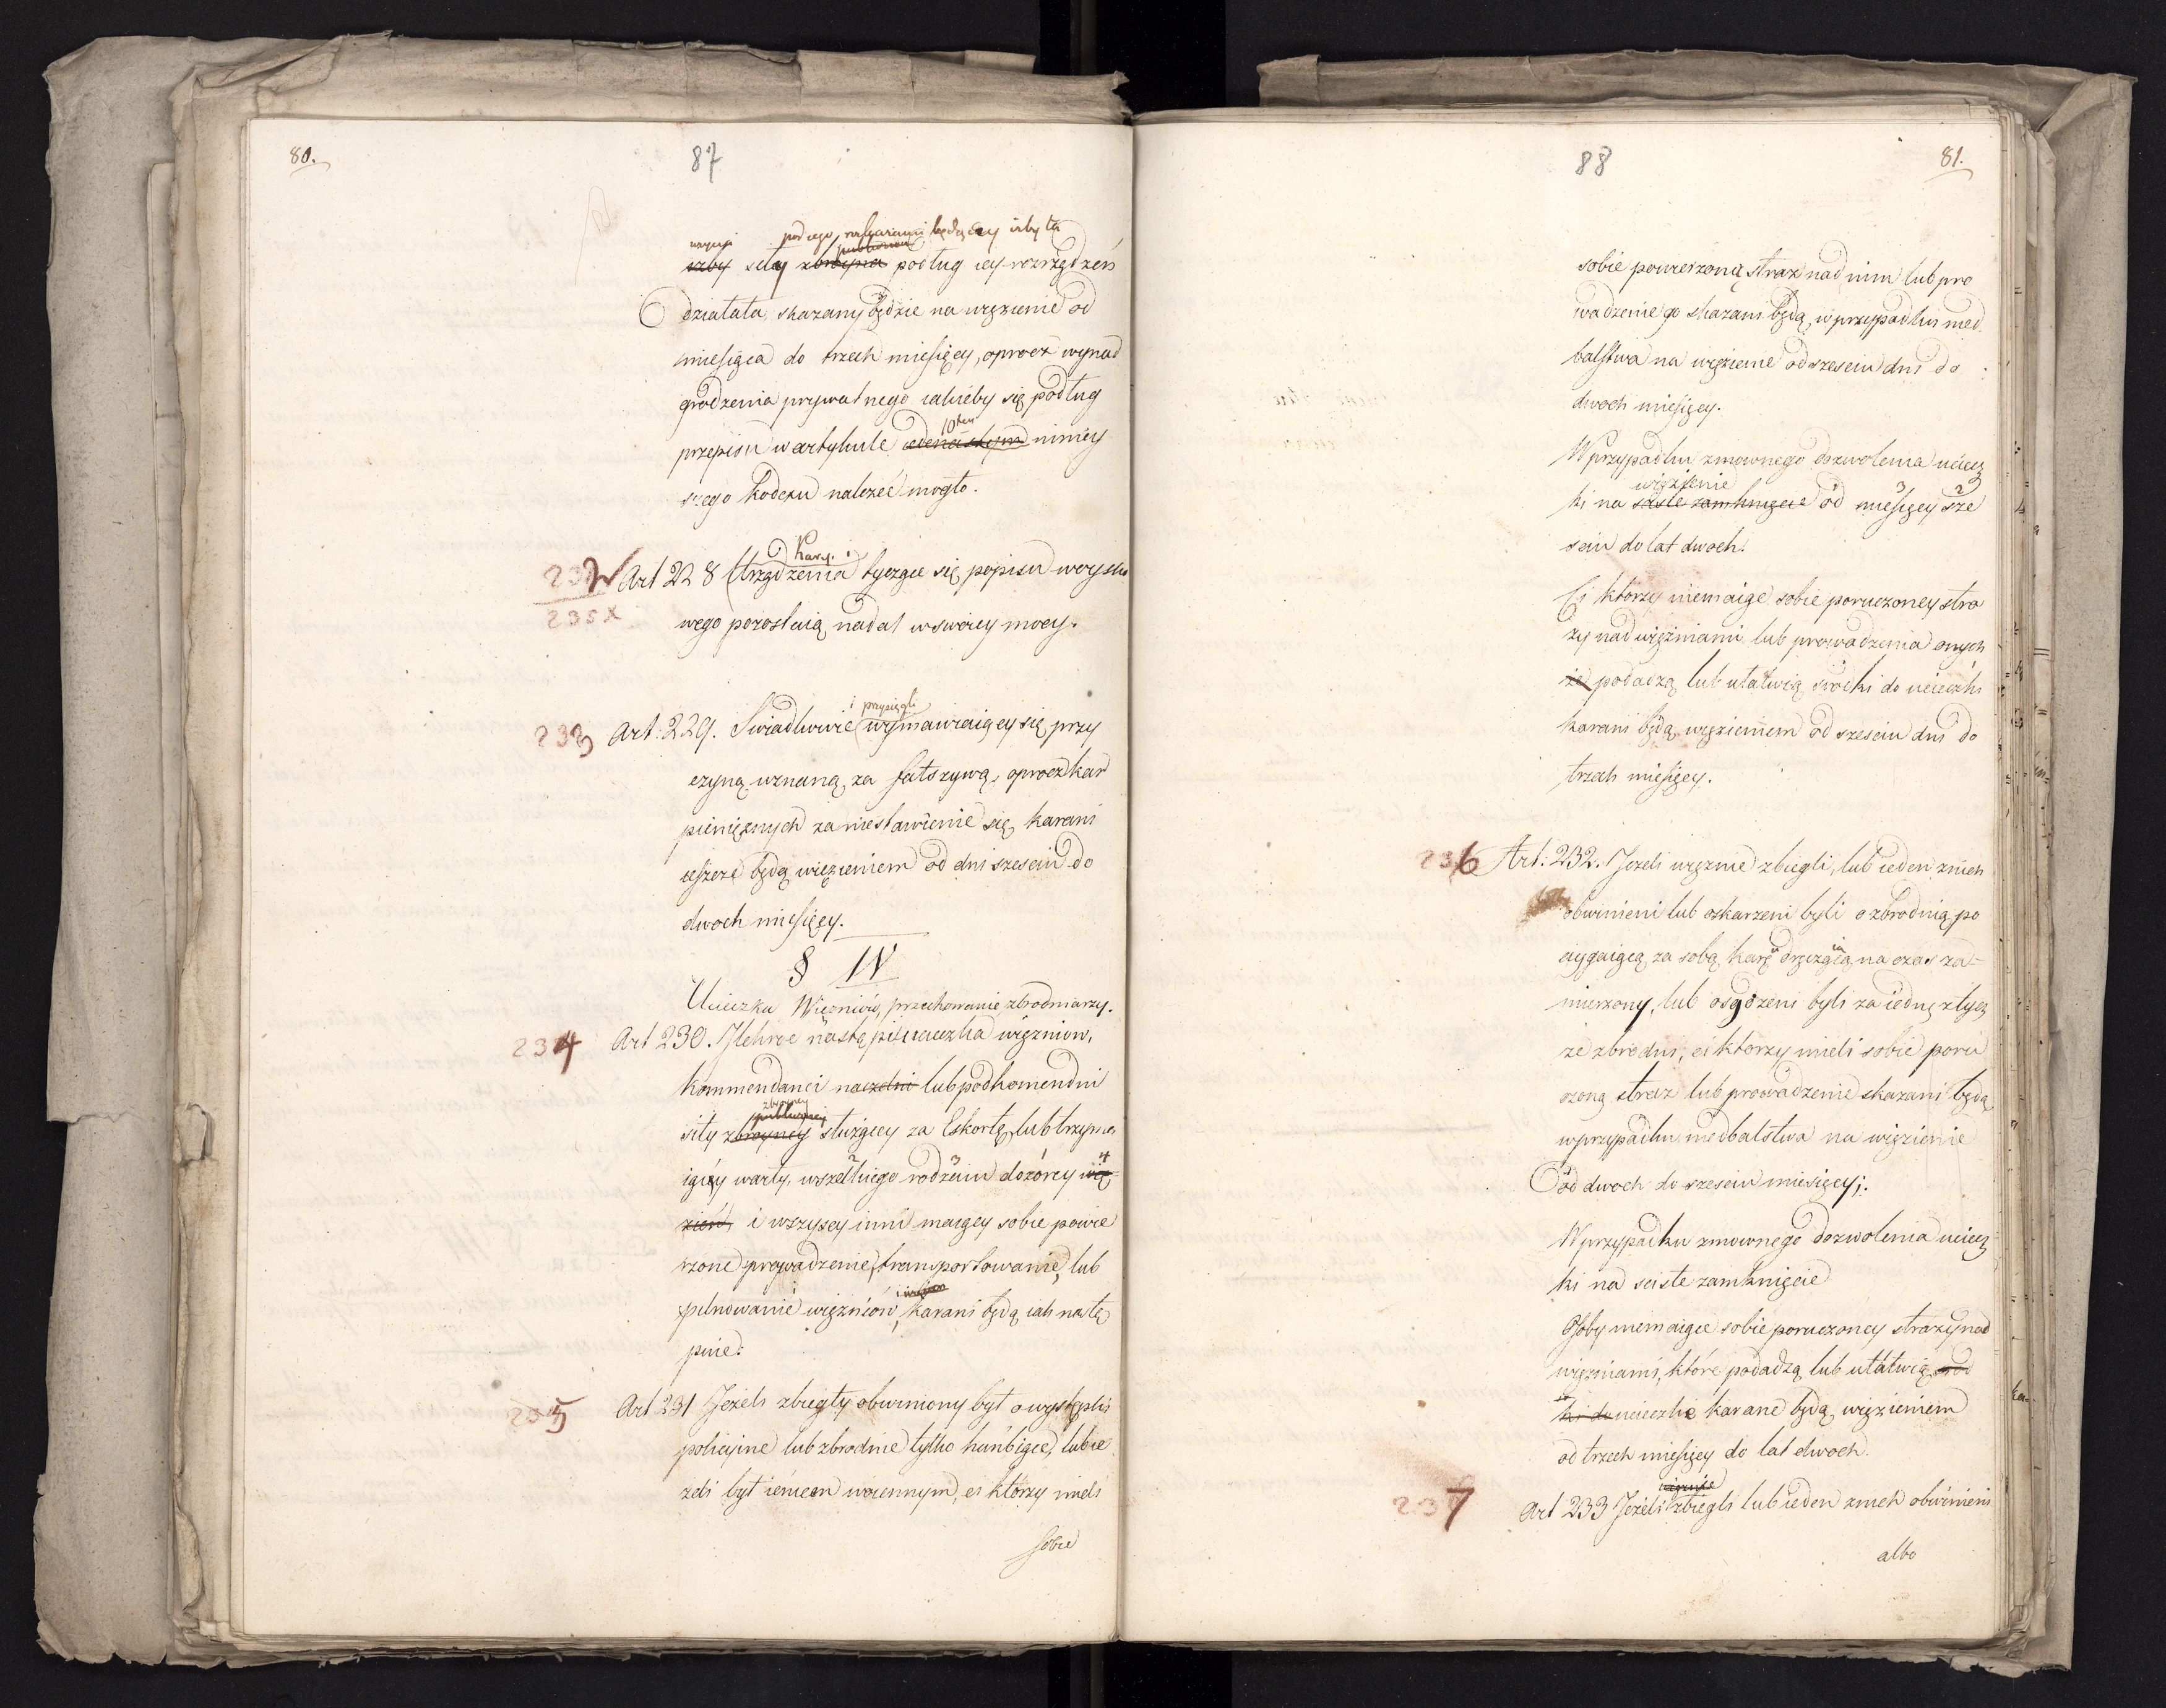 80.
87
pod iego rozkazami będącey iżby ta
użycia publiczna
szby siły zbroyna podług iey rozrządzeń
działała, skazany będzie na więzienie od
miesiąca do trzech miesięcy, oprocz wynad
grodzenia prywatnego iakieby się podług
10tym
przepisu w artykule iedenastym niniey
szego kodexu należeć mogło.
Kary i
232 Art 228 Urządzenia tyczące się popisu woysko
235 x wego pozostaią nadal w swoiey mocy.
i przysięgli
233 Art: 229. Swiadkowie wymawiaiący się przy
czyną uznaną za fałszywą, oprocz kar
pieniężnych za niestawienie się, karani
ieszcze będą więzieniem od dni szesciu do
dwoch miesięcy.
§ IV
Ucieczka Więzniów, przechowanie zbrodniarzy.
234 Art 230. Ilekroć nastąpi ucieczka więzniow,
kommendanci naczelni lub podkomendni
zbroyney
publiczney
siły zbroyney służący za Eskortę, lub trzyma
iący warty, wszelkiego rodzaiu dozórcy wię
2 3 4
zień, i wszyscy inni maiący sobie powie
rzone prowadzenie, transportowanie, lub
pilnowanie więzniów, karani będą iak nastę
pnie:
235 Art 231 Jeżeli zbiegły obwiniony był o występki
policyine lub zbrodnie tylko hańbiące, lub ie
żeli był ieńcem woiennym, ci którzy mieli
sobie
88
81.
sobie powierzoną straż nad nim lub pro
wadzenie go skazani będą, w przypadku nied
balstwa na więzienie od szesciu dni do
dwoch miesięcy.
W przypadku zmownego dozwolenia uciecz
więzienie
ki na scisłe zamknięcie od miesięcy sze
3 2
sciu do lat dwoch.
Ci którzy niemaiąc sobie poruczoney stra
ży nad więzniami lub prowadzenia onych
że podadzą lub ułatwią srodki do ucieczki
karani będą więzieniem od szesciu dni do
trzech miesięcy.
236 Art: 232. Jeżeli więznie zbiegli, lub ieden z nich
obwinieni lub oskarzeni byli o zbrodnią po
ciągaiącą za sobą karę dręczącą na czas za=
mierzony, lub osądzeni byli za iednę z tych
że zbrodni, ci którzy mieli sobie poru
czoną straż lub prowadzenie skazani będą
w przypadku niedbalstwa na więzienie
od dwoch do szesciu miesięcy;
W przypadku zmownego dozwolenia uciecz
ki na scisłe zamknięcie
Osoby niemaiące sobie poruczoney straży nad
więzniami, które podadzą lub ułatwią srod
ki do ucieczkę karane będą więzieniem
od trzech miesięcy do lat dwoch.
więznie
237 Art 233 Jeżeli zbiegli lub ieden z nich obwinieni
albo